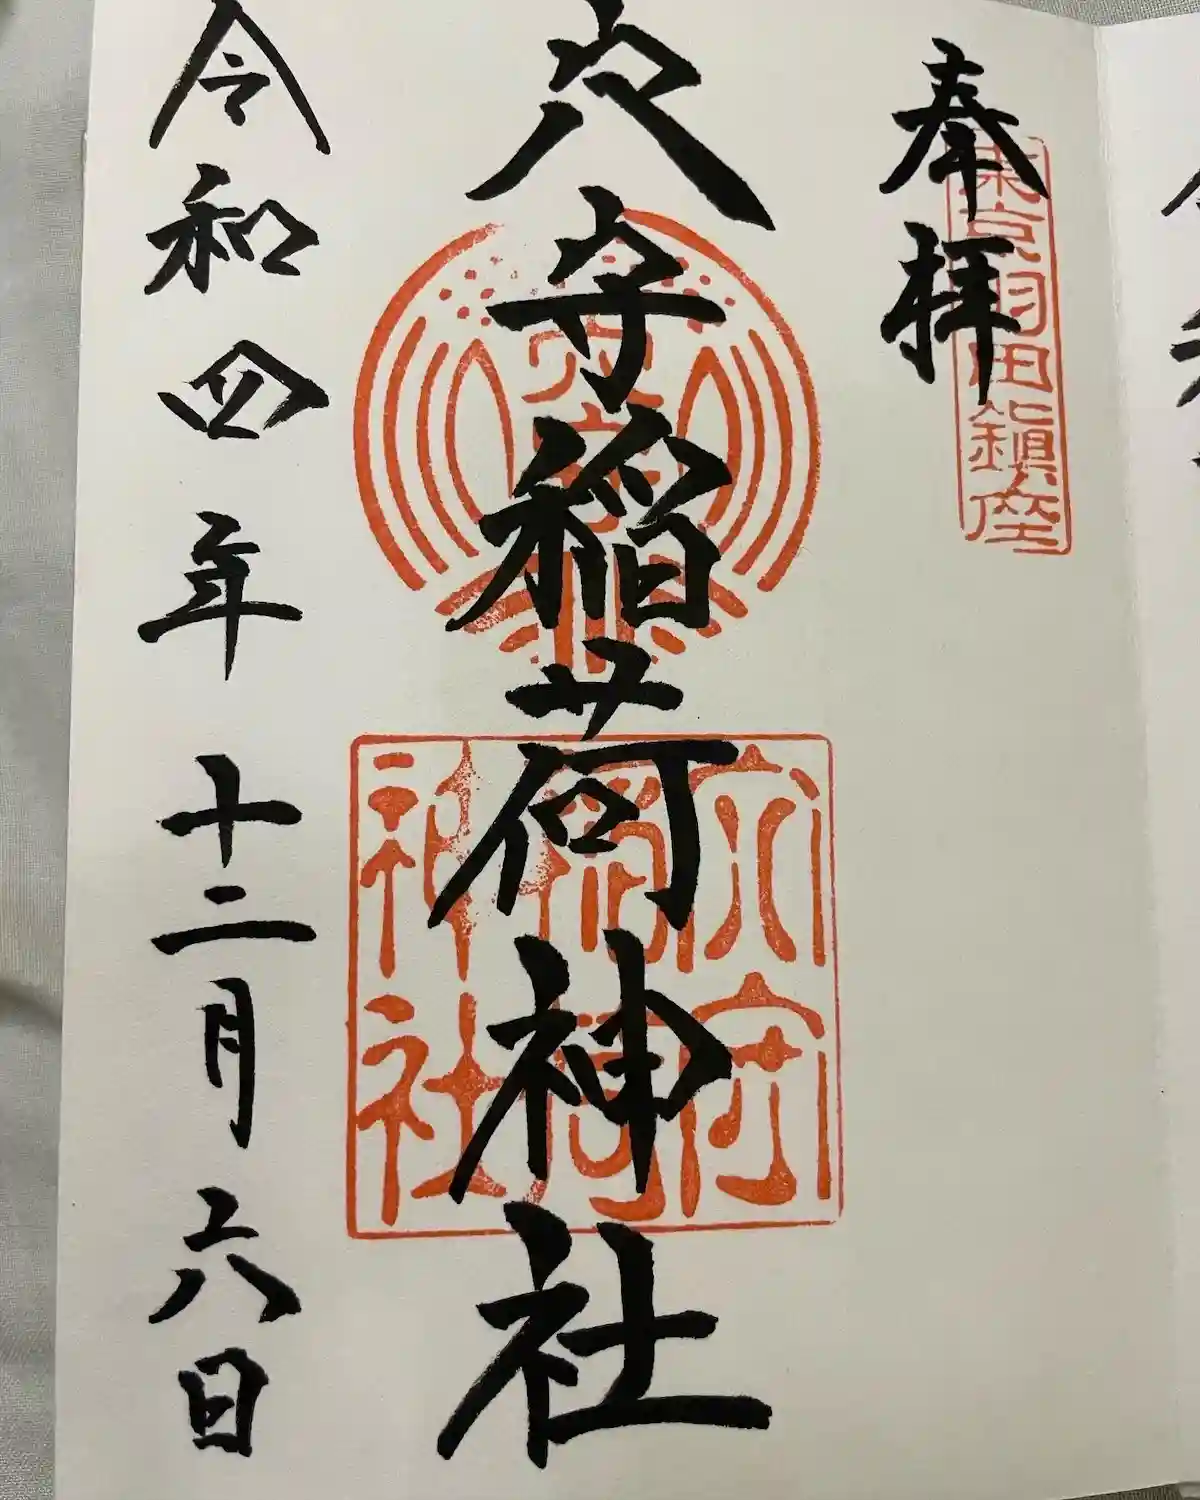 奉拝
東京羽田鎮座
穴守稲荷神社
穴守
稲荷
神社
令和四年十二月六日